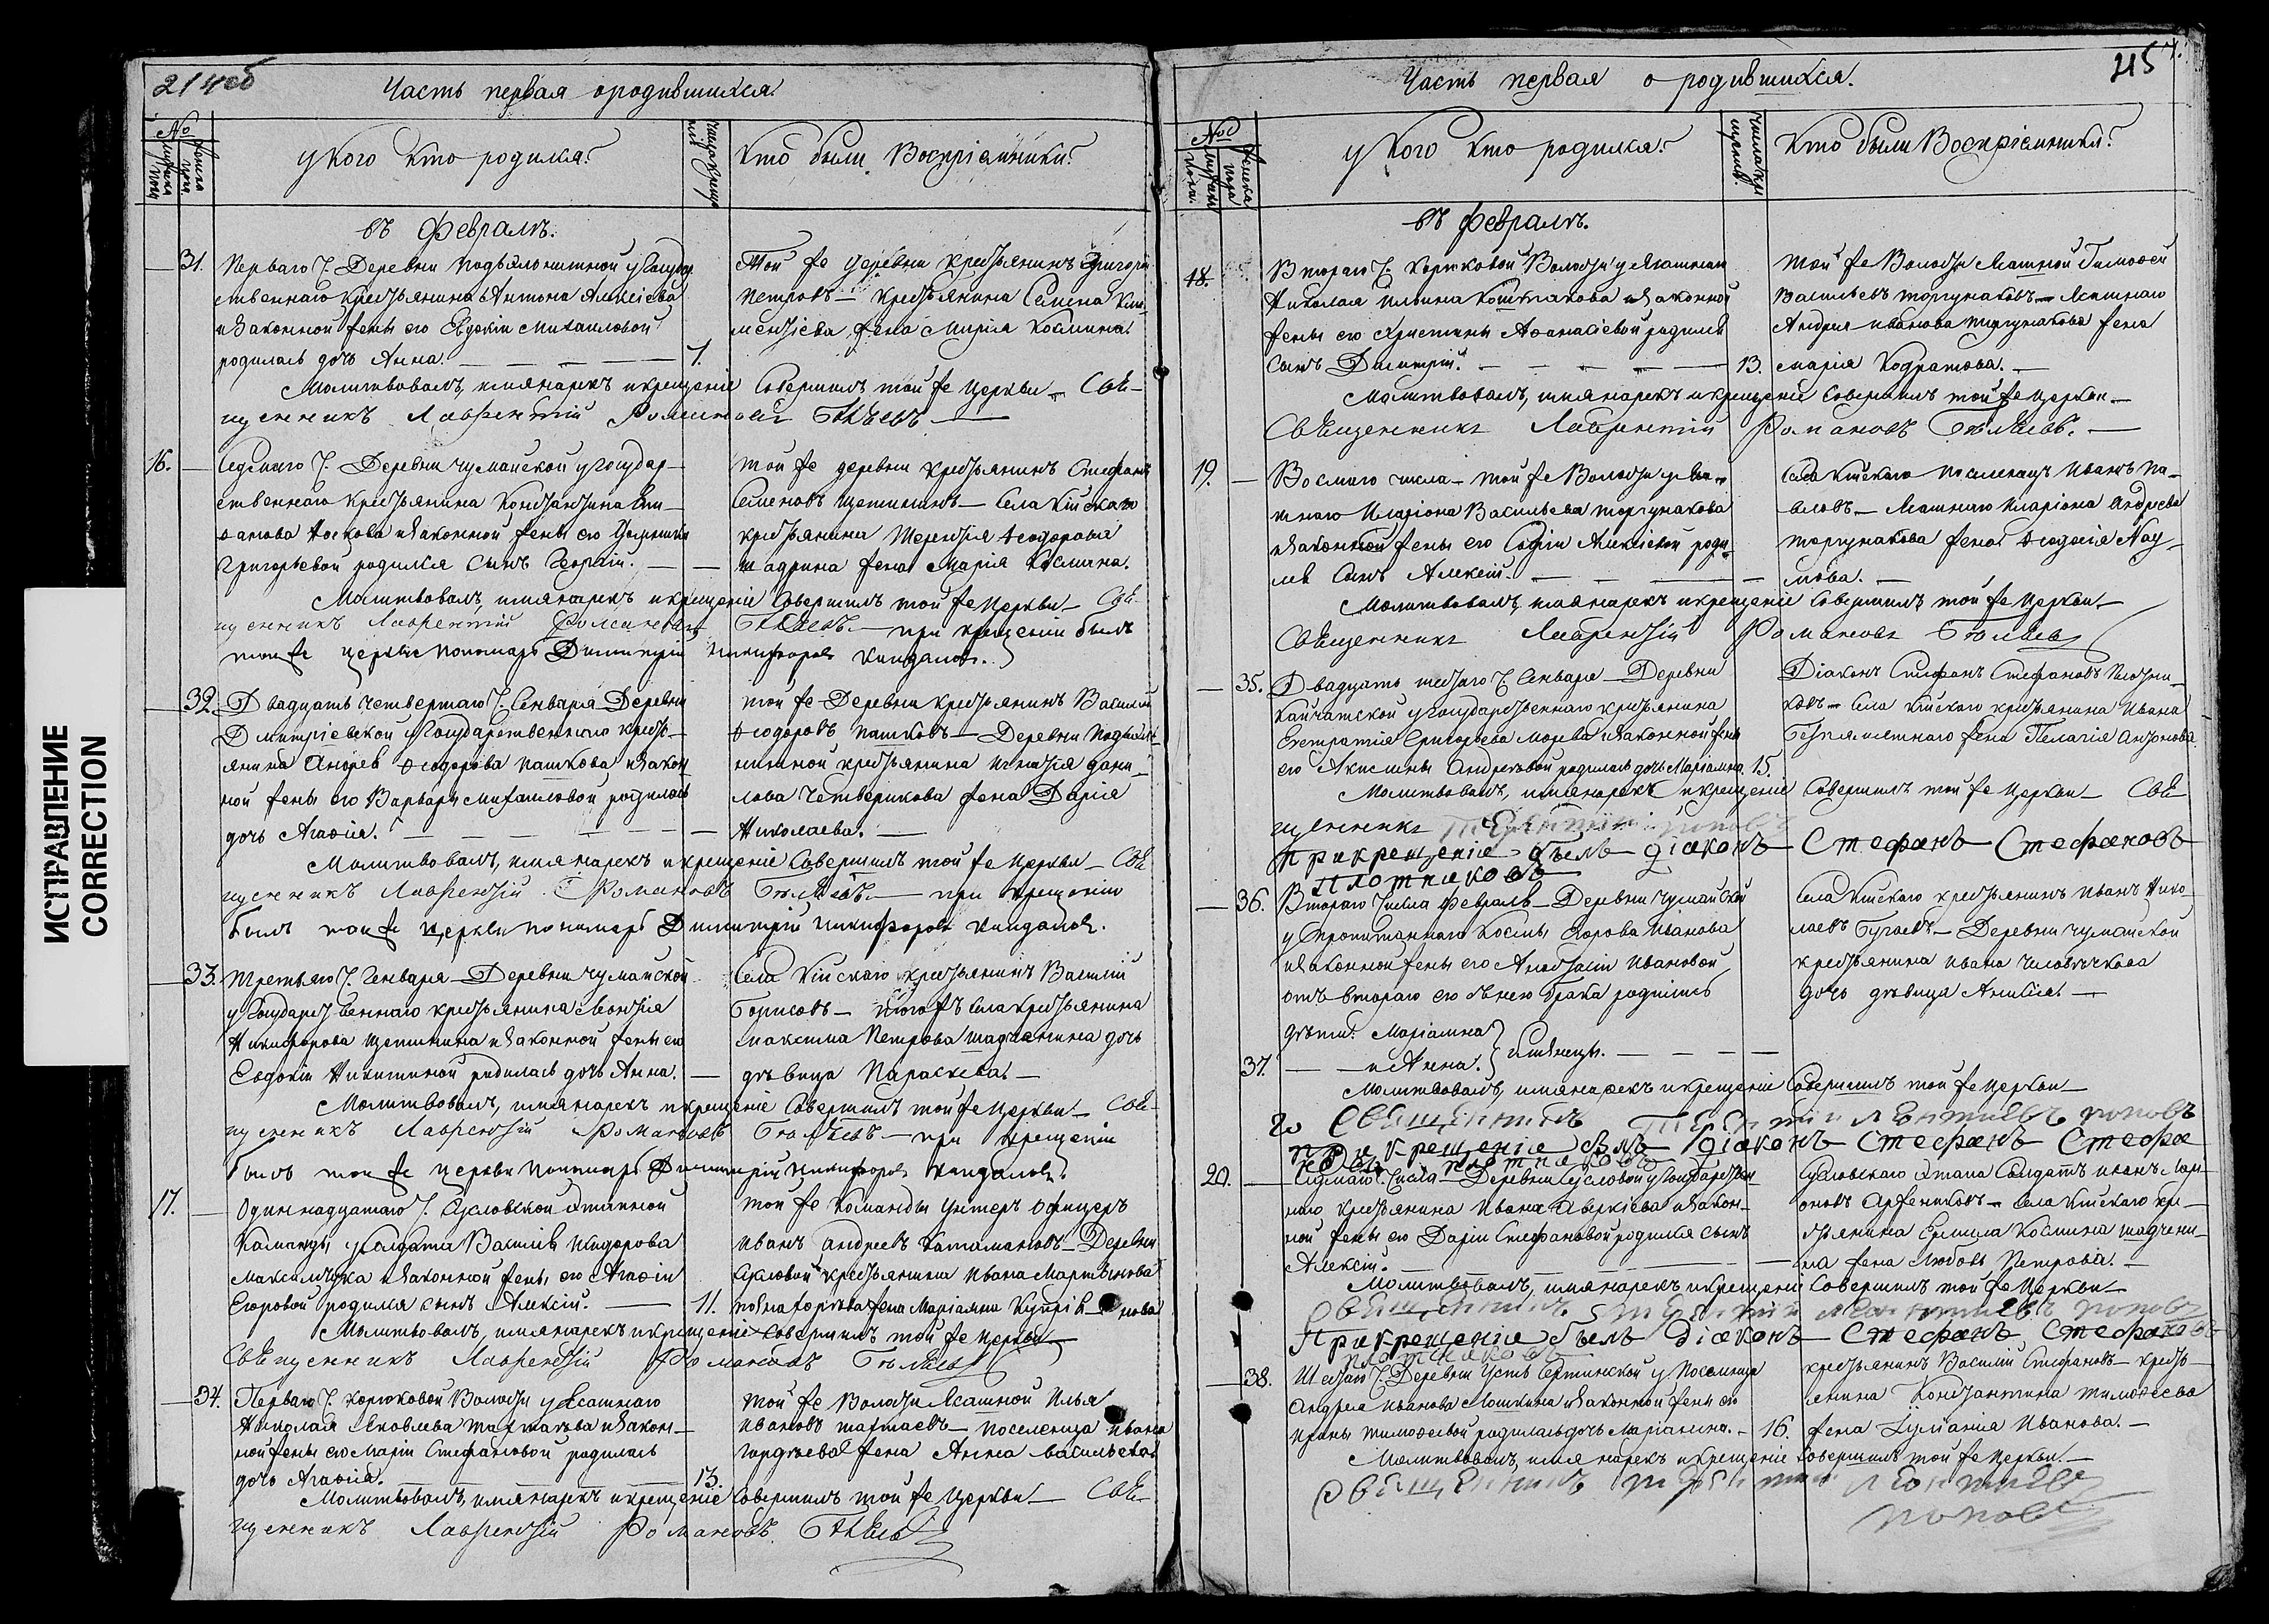 ИСПРАВЛЕНИЕ
CORRECTION
214об
Часть первая о родившихся.
№
У кого кто родился?
Кто были Восприемники?
въ Февралѣ.
31. Перваго Ч. Деревни у Государ
ственнаго крестьянина Антона Алексіева
и законной жены его Евдокіи Михаиловой
родилась дочь Анна. 7.
Той же деревни крестьянинъ Григорій
Петровъ — крестьянина Семена Кли
ментіева жена Марія Космина.
Молитвовалъ, имя нарекъ и крещеніе совершилъ той же Церкви — Свя
щенникъ Лаврентій Романовъ Бѣляевъ
16. Седьмаго Ч. Деревни Чумайской у Государ
ственнаго крестьянина Константина
и законной жены его
Григорьевой родился сынъ Георгій.
той же деревни крестьянинъ Стефанъ
Семеновъ Щетининъ — Села Кійскаго
крестьянина Терентія Ѳеодорова
Шадрина жена Марія Космина.
Молитвовалъ, имя нарекъ и крещеніе совершилъ той же Церкви — Свя
щенникъ Лаврентій Романовъ Бѣляевъ. — при крещеніи былъ
той же церкви пономарь Димитрій Никифоровъ
32. Двадцать четвертаго Ч. Генваря Деревни
Дмитріевской у Государственнаго кресть
янина Андрея Ѳеодорова Пашкова и закон
ной жены его Варвары Михаиловой родилась
дочь Агаѳія.
той же Деревни крестьянинъ Василій
Ѳеодоровъ Пашковъ — Деревни
крестьянина Игнатія Дани
лова Четверикова жена Дарія
Николаева.
Молитвовалъ, имя нарекъ и крещеніе совершилъ той же Церкви — Свя
щенникъ Лаврентій Романовъ Бѣляевъ. — при крещеніи
былъ той же церкви пономарь Димитрій Никифоровъ
33. Третьяго Ч. Генваря — Деревни Чумайской
у Государственнаго крестьянина Леонтія
Никифорова Щетинина и законной жены его
Евдокіи Никитиной родилась дочь Анна.
Села Кійскаго крестьянинъ Василій
Борисовъ — тогожъ села крестьянина
Максима Петрова дочь
дѣвица Параскева.
Молитвовалъ, имя нарекъ и крещеніе совершилъ той же Церкви — Свя
щенникъ Лаврентій Романовъ Бѣляевъ — при крещеніи
былъ той же церкви пономарь Димитрій Никифоровъ
17. Одиннадцатаго Ч. Сусловской этапной
Команды у солдата Василія
и законной жены его Агаѳіи
Егоровой родился сынъ Алексій. 11.
той же Команды унтеръ офицеръ
Иванъ Андреевъ — Деревни
Сусловой крестьянина Ивана Мартынова
жена Маріамна
Молитвовалъ, имя нарекъ и крещеніе совершилъ той же Церкви
Священникъ Лаврентій Романовъ Бѣляевъ
34. Перваго Ч. Корюковой Волости у Ясашнаго
Николая Яковлева и закон
ной жены его Маріи Стефановой родилась
дочь Агаѳія. 13.
той же Волости Ясашной Илья
Ивановъ — поселенца Ивана
Гордѣева жена Анна Васильева
Молитвовалъ, имя нарекъ и крещеніе совершилъ той же Церкви — Свя
щенникъ Лаврентій Романовъ Бѣляевъ
215
Часть первая о родившихся.
№
У кого кто родился?
Кто были Восприемники?
въ Февралѣ.
18. Втораго Ч. Корюковой Волости у Ясашнаго
Николая Ильина и законной
жены его Христины Аѳанасіевой родился
сынъ Димитрій. 13.
той же Волости Ясашной Тимоѳей
Васильевъ Торгунаковъ — Ясашнаго
Андрея Иванова Торгунакова жена
Марія Кодратова.
Молитвовалъ, имя нарекъ и крещеніе совершилъ той же Церкви
Священникъ Лаврентій Романовъ Бѣляевъ.
19. Восмаго числа — той же Волости у Яса
шнаго Иларіона Васильева Торгунакова
и законной жены его Софіи Алексіевой роди
лся сынъ Алексій.
Села Кійскаго поселенецъ Иванъ Па
вловъ — Ясашнаго Иларіона Андреева
Торгунакова жена Ѳеодосія Нау
мова.
Молитвовалъ, имя нарекъ и крещеніе совершилъ той же Церкви
Священникъ Лаврентій Романовъ Бѣляевъ
35. Двадцать шестаго Ч. Генваря — Деревни
Камчатской у Государственнаго крестьянина
Григорьева и законной жены
его Аксиньи Андреевой родилась дочь Маріамна. 15.
Діаконъ Стефанъ Стефановъ Плотни
ковъ — Села Кійскаго крестьянина Ивана
Безпамятнаго жена Пелагія Антонова.
Молитвовалъ, имя нарекъ и крещеніе совершилъ той же Церкви — Свя
щенникъ Терентій Поповъ
При крещеніе былъ діаконъ Стефанъ Стефановъ
Плотниковъ
36. Втораго числа Февраля — Деревни Чумайской
у пропитаннаго Космы Егорова Иванова
и законной жены его Анастасіи Ивановой
отъ втораго его съ нею брака родились
дѣти: Маріамна
37. и Анна. } близнецы.
Села Кійскаго крестьянинъ Иванъ Нико
лаевъ Бугаевъ — Деревни Чумайской
крестьянина Ивана Человѣчкова
дочь дѣвица Анисія.
Молитвовалъ, имя нарекъ и крещеніе совершилъ той же Церкви
Священникъ Терентій Леонтиевъ Поповъ
При крещеніе былъ діаконъ Стефанъ Стефа
новъ Плотниковъ
20. Седмаго Числа — Деревни Сусловой у Государствен
наго крестьянина Ивана Аверкіева и закон
ной жены его Даріи Стефановой родился сынъ
Алексій.
Сусловскаго этапа Солдатъ Иванъ
— Села Кійскаго кре
стьянина Ермила Космина
жена Любовь Петрова.
Молитвовалъ, имя нарекъ и крещеніе совершилъ той же Церкви
Священникъ Терентий Леонтиевъ Поповъ
При крещеніе былъ Діаконъ Стефанъ Стефановъ
Плотниковъ
38. Шестаго Ч. Деревни Усть Сертинской у Поселенца
Андрея Иванова и законной жены его
Ирины Тимоѳеевой родилась дочь Маріамна. 16.
крестьянинъ Василій Стефановъ — кресть
янина Константина Тимоѳеева
жена Иванова.
Молитвовалъ, имя нарекъ и крещеніе совершилъ той же Церкви.
Священникъ Терентий Леонтиевъ
Поповъ